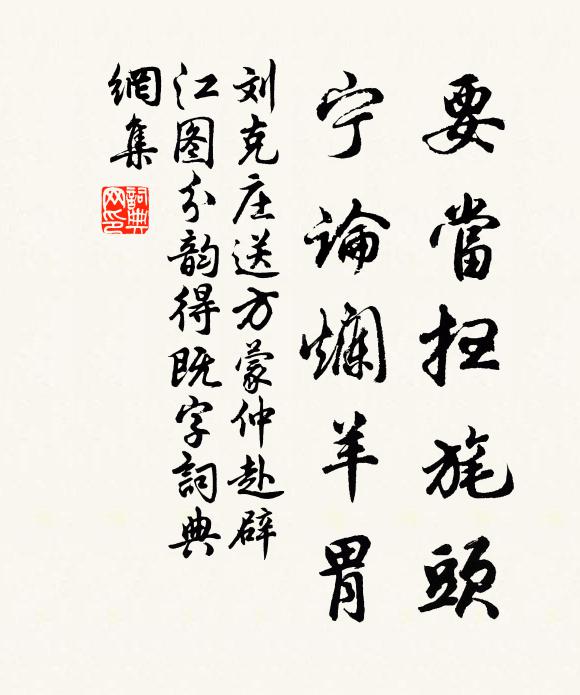 要當扫旄頭
宁論爛羊胃
刘克庄送方蒙仲赴辟
江图分韵得既字詞典
網集
詞典
网印